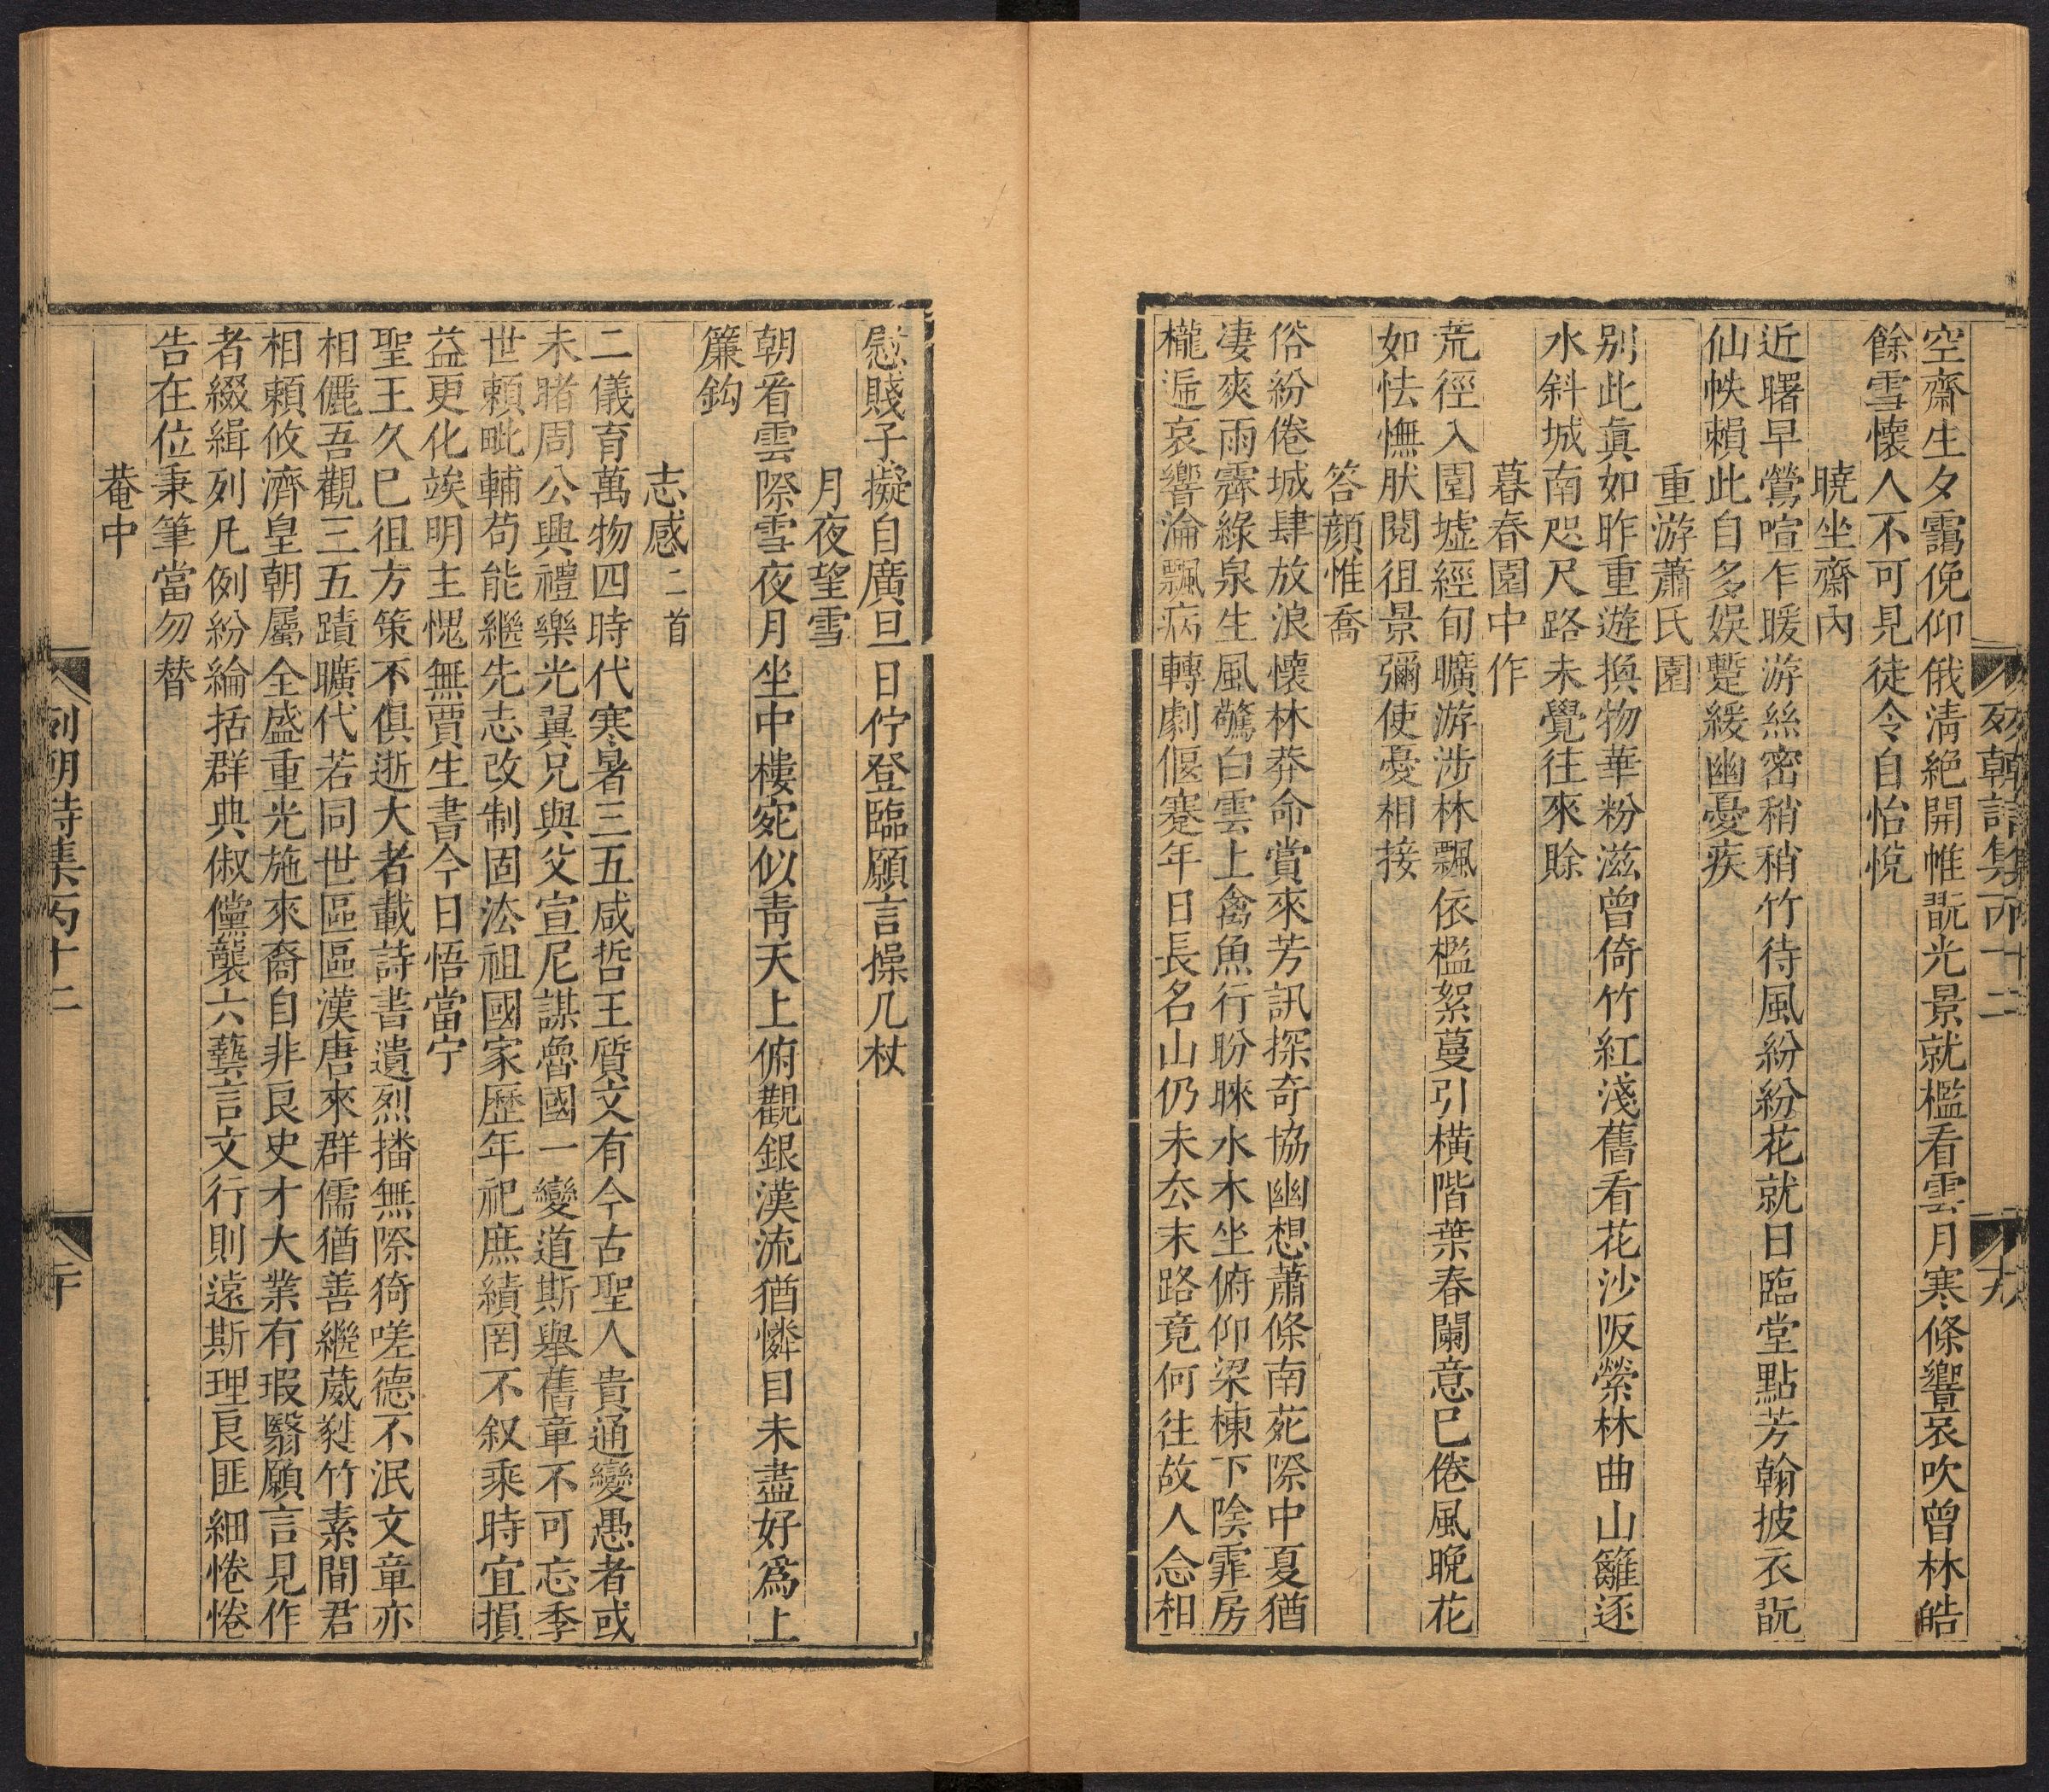 列朝詩集丙十二
十九
空齋生夕靄俛仰俄淸絕開帷翫光景就檻看雲月寒條響哀吹曾林皓
餘雪懷人不可見徒令自怡悅
曉坐齋內
近曙早鶯喧乍暖游絲密稍稍竹待風紛紛花就日臨堂點芳翰披衣翫
仙帙賴此自多娛蹔緩幽憂疾
重游蕭氏園
別此眞如昨重遊換物華粉滋曾倚竹紅淺舊看花沙阪縈林曲山籬逐
水斜城南咫尺路未覺往來賒
暮春園中作
荒徑入園墟經旬曠游涉林飄依檻絮蔓引橫階葉春闌意已倦風晚花
如怯憮肰閱徂景彌使憂相接
答顏惟喬
俗紛倦城肆放浪懷林莽命賞來芳訊探奇協幽想蕭條南苑際中夏猶
凄爽雨霽綠泉生風驚白雲上禽魚行盼睞水木坐俯仰梁棟下陰霏房
櫳遞哀響淪飄病轉劇偃蹇年日長名山仍未厺末路竟何往故人念相
慰賤子擬自廣旦日佇登臨願言操几杖
月夜望雪
朝看雲際雪夜月坐中樓宛似靑天上俯觀銀漢流猶憐目未盡好爲上
簾鈎
志感二首
二儀育萬物四時代寒暑三五咸哲王質文有今古聖人貴通變愚者或
未睹周公興禮樂光翼兄與父宣尼謀魯國一變道斯舉舊章不可忘季
世賴毗輔苟能繼先志改制固法祖國家歷年祀庶績罔不叙乘時宜損
益更化竢明主愧無賈生書今日悟當宁
聖王久已徂方策不俱逝大者載詩書遺烈播無際猗嗟德不泯文章亦
相儷吾觀三五蹟曠代若同世區區漢唐來群儒猶善繼葳蕤竹素間君
相賴攸濟皇朝屬全盛重光施來裔自非良史才大業有瑕翳願言見作
者綴緝列凡例紛綸括群典俶儻襲六藝言文行則遠斯理良匪細惓惓
告在位秉筆當勿替
菴中
列朝詩集丙十二
二十